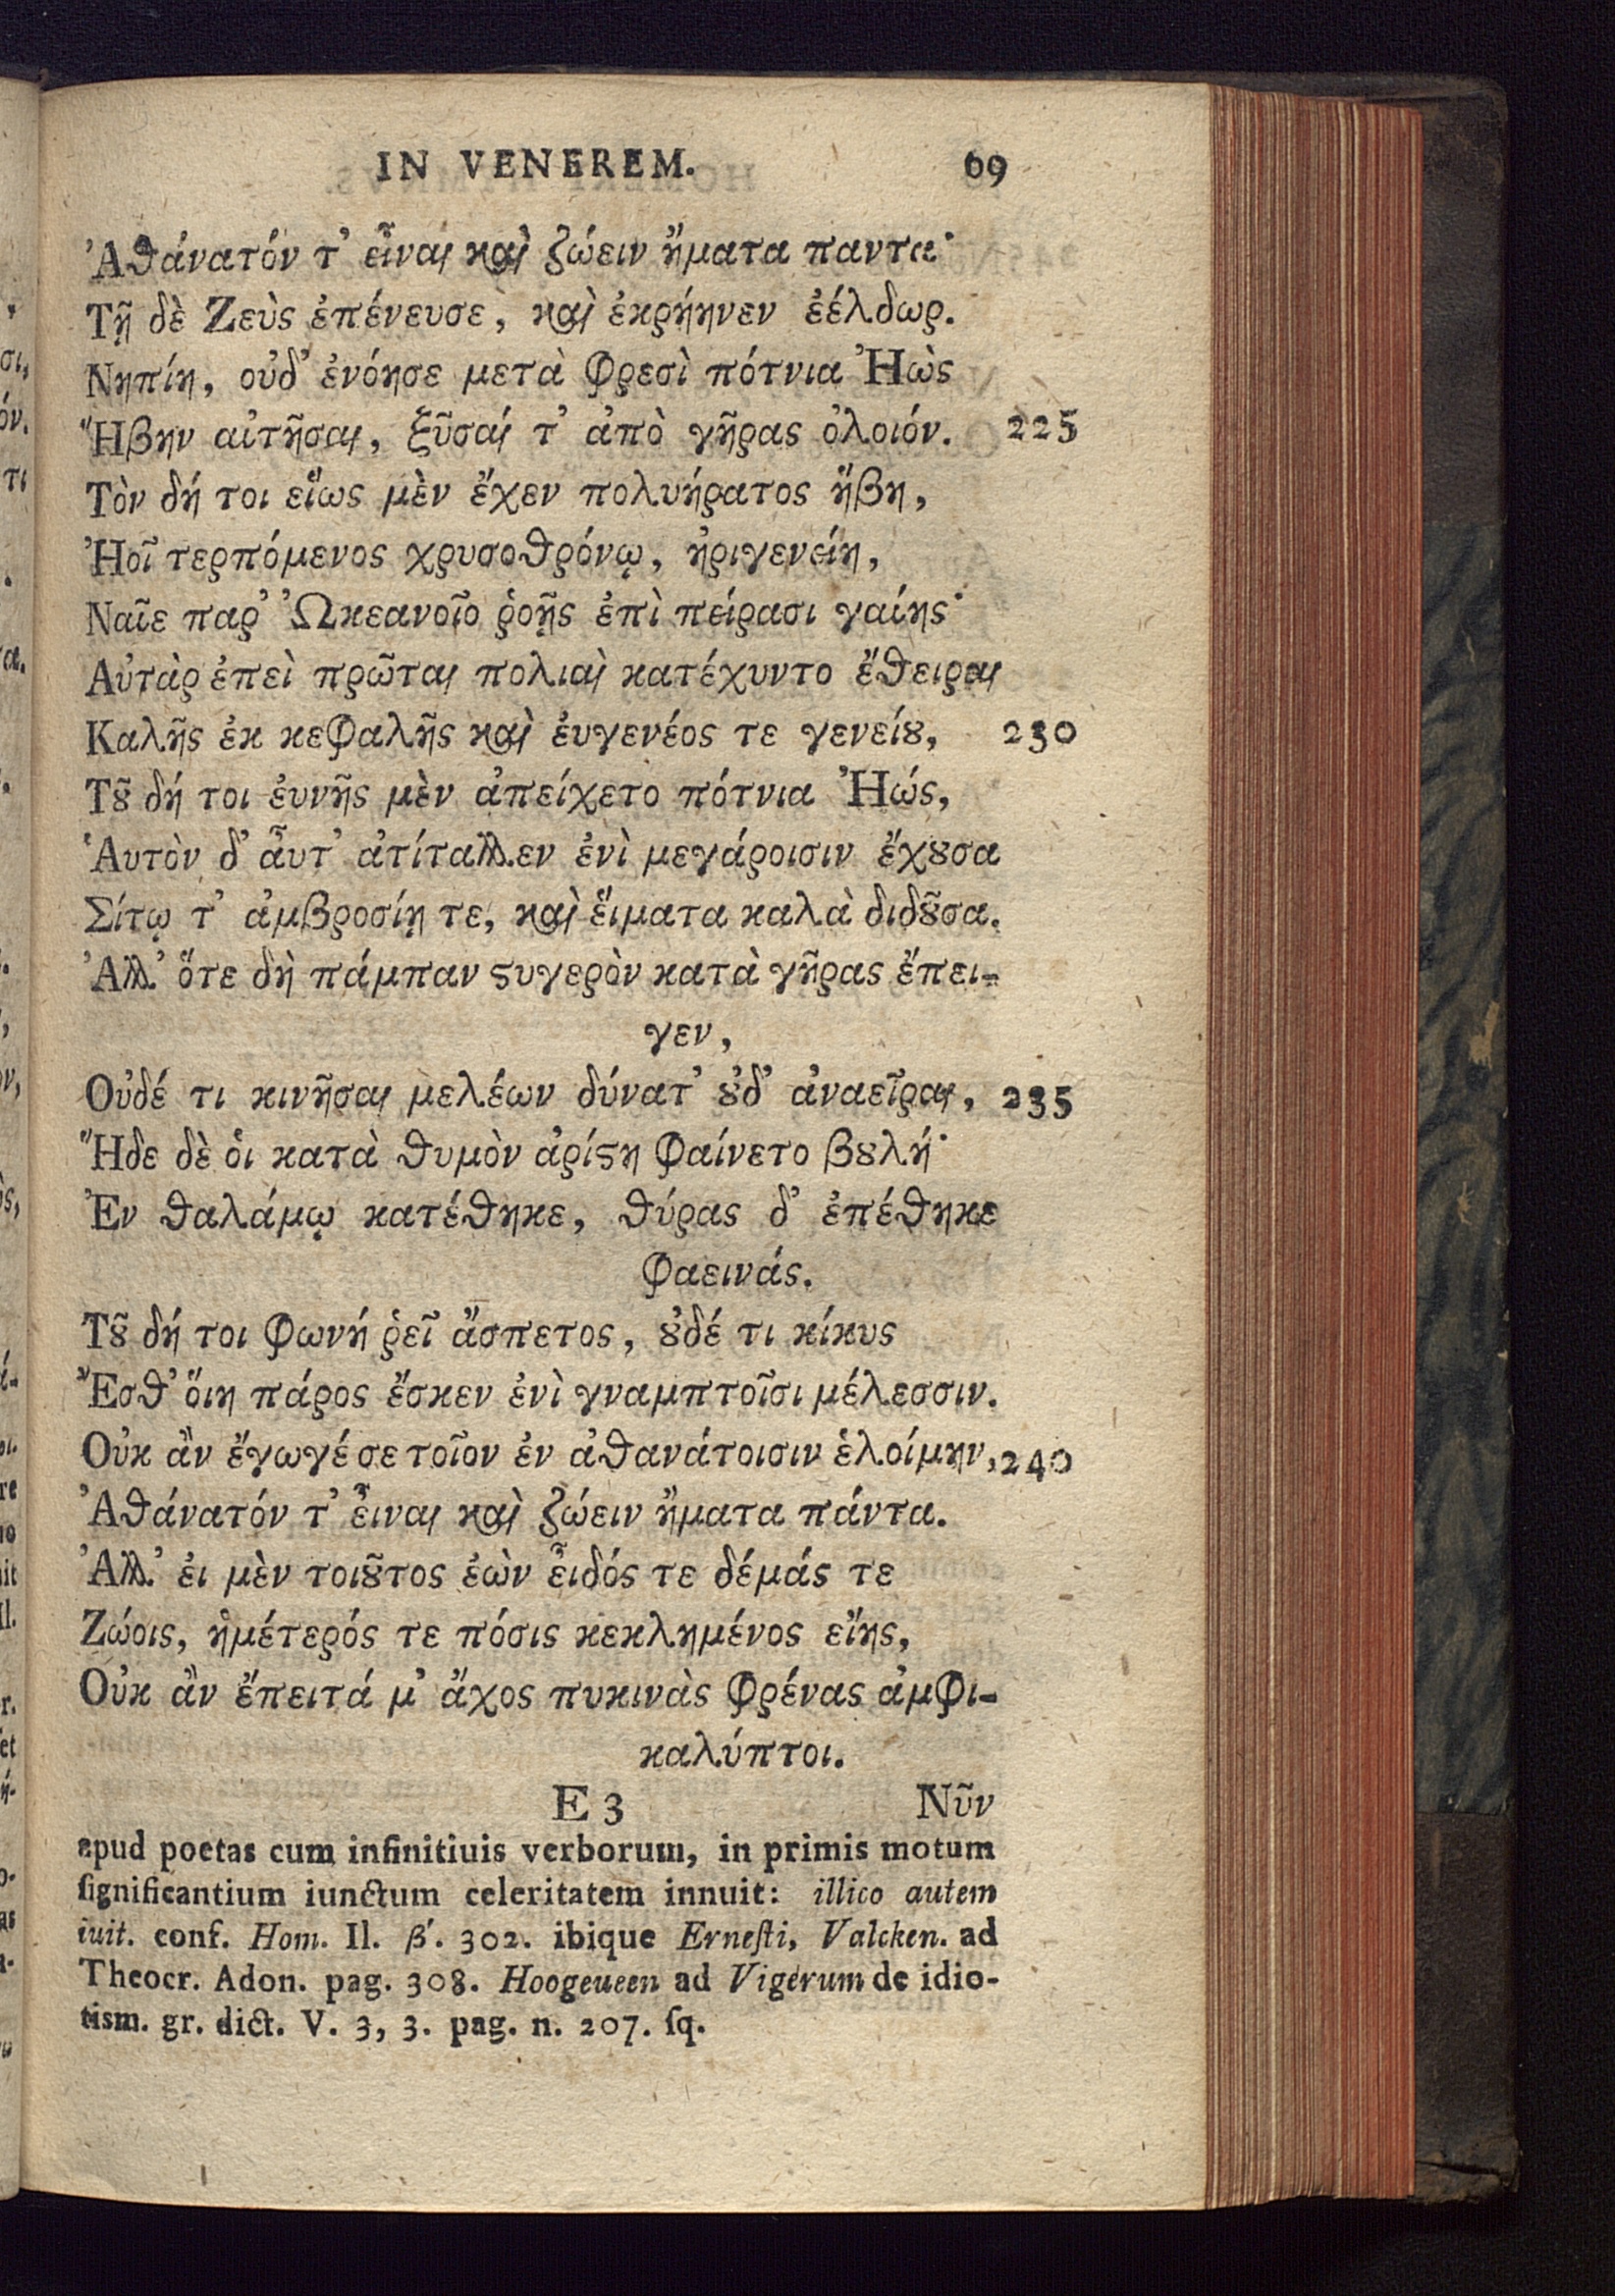 IN VENEREM. 69
Ἀθάνατόν τ' εἶναι καὶ ζώειν ἤματα παντα·
Τῇ δὲ Ζεὺς ἐπένευσε, καὶ ἐκρήηνεν ἐέλδωρ.
Νηπίη, οὐδ' ἐνόησε μετὰ φρεσὶ πότνια Ἠὼς
Ἥβην αἰτῆσαι, ξῦσαί τ' ἀπὸ γῆρας ὀλοιόν. 225
Τὸν δή τοι εἵως μὲν ἔχεν πολυήρατος ἥβη,
Ἠοῖ τερπόμενος χρυσοθρόνῳ, ἠριγενείῃ,
Ναῖε παρ' Ὠκεανοῖο ῥοῇς ἐπὶ πείρασι γαίης·
Αὐτὰρ ἐπεὶ πρῶται πολιαὶ κατέχυντο ἔθειραι
Καλῆς ἐκ κεφαλῆς καὶ ἐυγενέος τε γενείȣ, 230
Τȣ͂ δή τοι ἐυνῆς μὲν ἀπείχετο πότνια Ἠώς,
Ἀυτὸν δ' ἆυτ' ἀτίταλλεν ἐνὶ μεγάροισιν ἔχȣσα
Σίτῳ τ' ἀμβροσίῃ τε, καὶ ἕιματα καλὰ διδȣ͂σα.
Ἀλλ' ὅτε δὴ πάμπαν ϛυγερὸν κατὰ γῆρας ἔπει-
γεν,
Οὐδέ τι κινῆσαι μελέων δύνατ' ȣ̓δ' ἀναεῖραι, 235
Ἥδε δὲ ὁι κατὰ θυμὸν ἀρίϛη φαίνετο βȣλή·
Ἐν θαλάμῳ κατέθηκε, θύρας δ' ἐπέθηκε
φαεινάς.
Τȣ͂ δή τοι φωνή ῥεῖ ἄσπετος, ȣ̓δέ τι κίκυς
Ἔσθ' ὅιη πάρος ἔσκεν ἐνὶ γναμπτοῖσι μέλεσσιν.
Οὐκ ἂν ἔγωγέ σε τοῖον ἐν ἀθανάτοισιν ἑλοίμην, 240
Ἀθάνατόν τ' ἶειναι καὶ ζώειν ἤματα πάντα.
Ἀλλ' ἐι μὲν τοιȣ͂τος ἐὼν ἶειδός τε δέμάς τε
Ζώοις, ἡμέτερός τε πόσις κεκλημένος εἴης,
Οὐκ ἂν ἔπειτά μ' ἄχος πυκινὰς φρένας ἀμφι-
καλύπτοι.
E 3 Νῦν
apud poetas cum infinitiuis verborum, in primis motum
ſignificantium iunctum celeritatem innuit: illico autem
iuit. conf. Hom. Il. β'. 302. ibique Erneſti, Valcken. ad
Theocr. Adon. pag. 308. Hoogeueen ad Vigerum de idio-
tism. gr. dict. V. 3, 3. pag. n. 207. ſq.